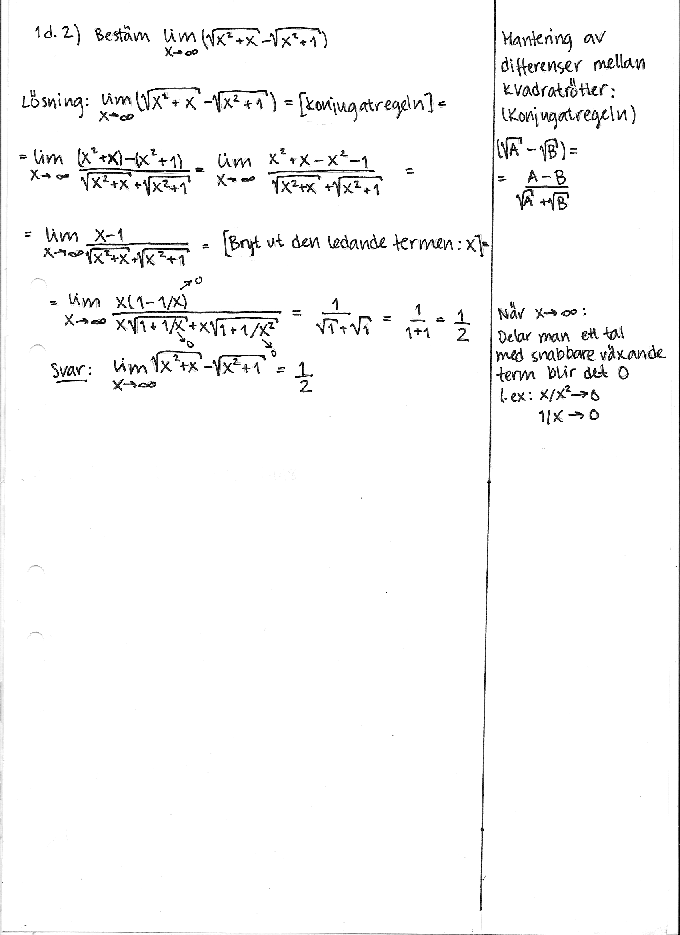 1d. 2) Bestäm lim x→∞ (√(x²+x) - √(x²+1))
Lösning: lim x→∞ (√(x²+x) - √(x²+1)) = [konjugatregeln] =
= lim x→∞ ((x²+x)-(x²+1))/(√(x²+x) + √(x²+1)) = lim x→∞ (x²+x-x²-1)/(√(x²+x) + √(x²+1)) =
= lim x→∞ (x-1)/(√(x²+x) + √(x²+1)) = [Bryt ut den ledande termen: x] =
= lim x→∞ (x(1-1/x)→0)/(x√(1+1/x→0) + x√(1+1/x²→0)) = 1/(√1+√1) = 1/(1+1) = 1/2
Svar: lim x→∞ √(x²+x) - √(x²+1) = 1/2
Hantering av
differenser mellan
kvadratrötter:
(Konjugatregeln)
(√A - √B) =
= (A-B)/(√A+√B)
När x→∞:
Delar man ett tal
med snabbare växande
term blir det 0
t.ex: x/x²→0
1/x → 0